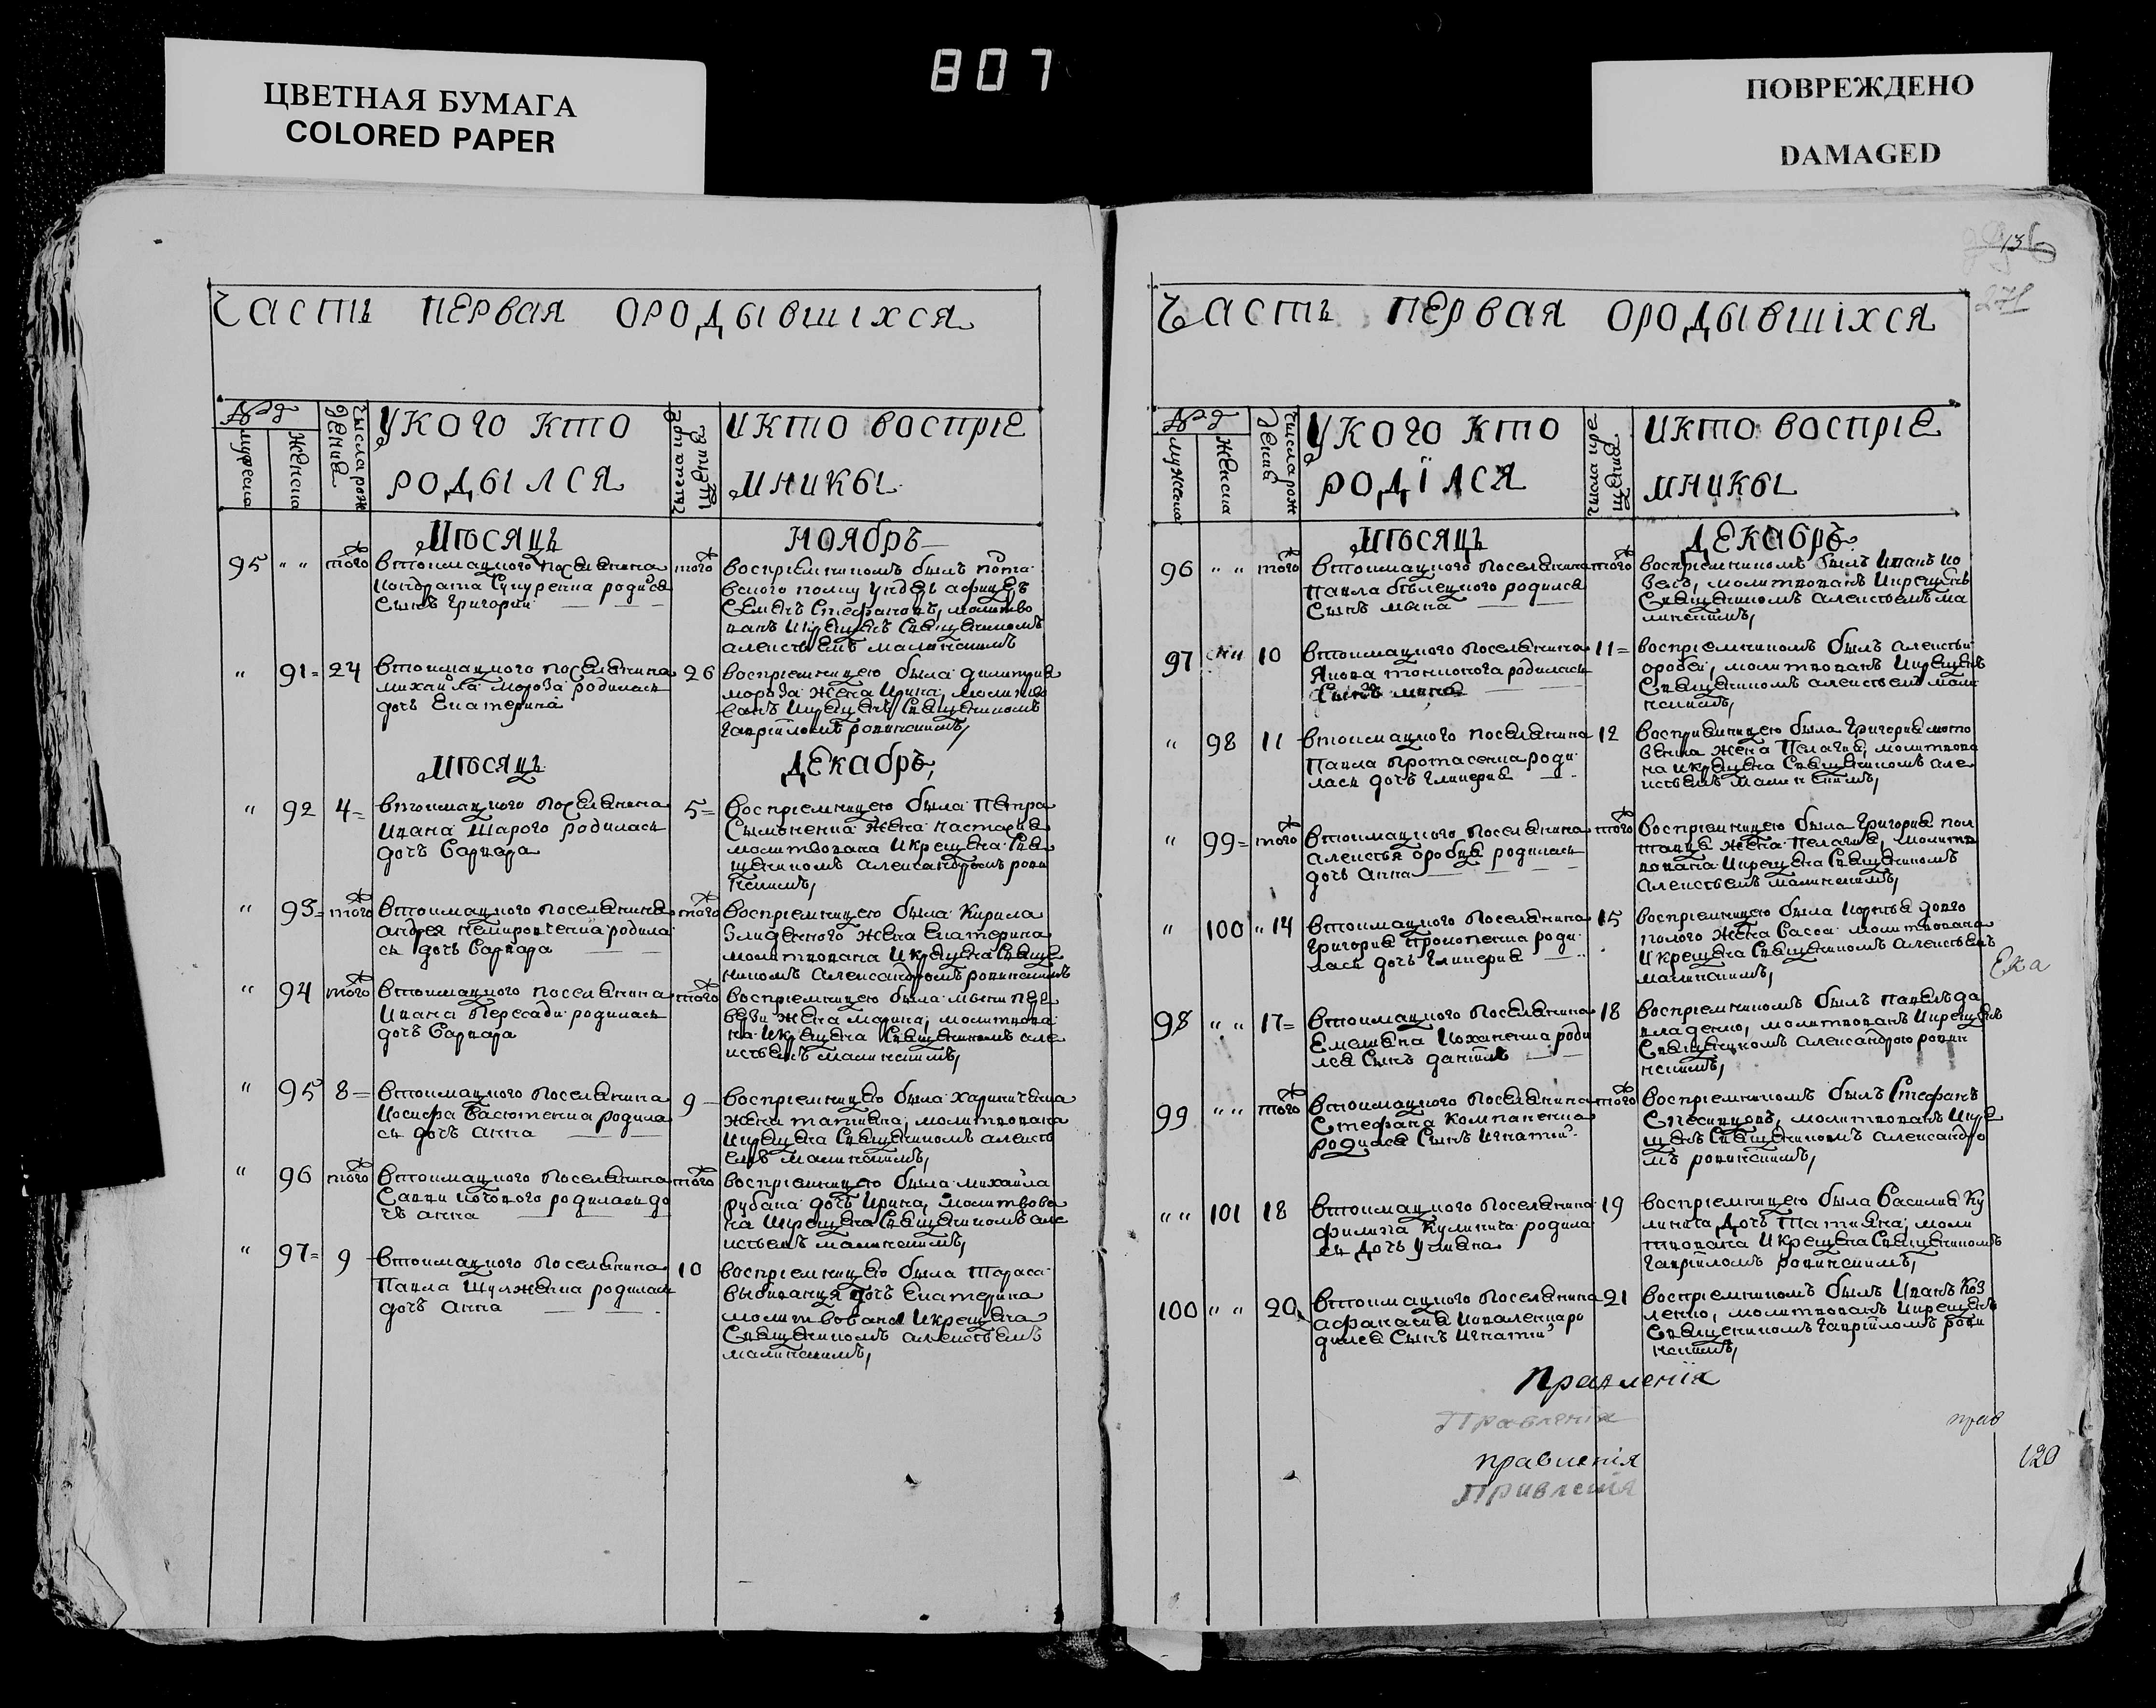 ЦВЕТНАЯ БУМАГА
COLORED PAPER
807
ПОВРЕЖДЕНО
DAMAGED
Часть первая ородывшіхся
№ д
мужеска
женска
чысла рож
дения
у кого кто
родылся
чысла кре
щения
и кто воспріе
мникы
Мѣсяцъ Ноябръ
95 " " того
втоимацкого поселянина
сынъ Григорий
того
воспріемникомъ былъ
Семенъ Стефановъ, молитво
ванъ и крещенъ Священикомъ
алексѣемъ малинскимъ
" 91 = 24
втоимацкого поселянина
михайла мороза родилась
дочь Екатерина
26
воспріемницею была димитрия
мороза жена Ирина, молитво
ванъ и крещенъ Священикомъ
гавріиломъ ровинскимъ,
Мѣсяцъ Декабръ,
" 92 4 =
втоимацкого поселянина
Ивана Шарого родилась
дочь Варвара
5 =
воспріемницею была Петра
Сымоненка жена настасия
молитвована и крещена Свя
щеникомъ александромъ рови
нскимъ,
" 93 = того
втоимацкого поселянина
андрея немировченка родила
сь дочь Варвара
того
воспріемницею была Кирила
Злиденного жена Екатерина
молитвована и крещена Свяще
никомъ александромъ ровинскимъ
" 94 того
втоимацкого поселянина
Ивана Пересади родилась
дочь Варвара
того
воспріемницею была
жена марина, молитвова
на и крещена Священикомъ але
ксѣемъ малинскимъ,
" 95 8 =
втоимацкого поселянина
Иосифа Васютенка родила
сь дочь анна
9
воспріемницею была
жена татияна, молитвована
и крещена Священикомъ алексѣ
емъ малинскимъ,
" 96 того
втоимацкого поселянина
Савки родилась до
чь анна
того
воспріемницею была михайла
рубана дочь Ирина, молитвова
на и крещена Священикомъ але
ксѣемъ малинскимъ,
" 97 = 9
втоимацкого поселянина
Павла Шулженка родилась
дочь анна
10
воспріемницею была тараса
дочь Екатерина
молитвована и крещена
Священикомъ алексѣемъ
малинскимъ,
136
271
Часть первая ородывшіхся
№ д
мужеска
женска
чысла рож
дения
у кого кто
родїлся
чысла кре
щения
и кто воспріе
мникы
Мѣсяцъ Декабръ
96 " " того
втоимацкого поселянина
Павла бѣлецкого родился
Сынъ
того
воспріемникомъ былъ Иванъ
молитвованъ и крещенъ
Священикомъ алексѣемъ ма
линскимъ,
97 10
втоимацкого поселянина
родилась
11 =
воспріемникомъ былъ алексѣй
оробей, молитвованъ и крещенъ
Священикомъ алексѣемъ мали
нскимъ,
" 98 11
втоимацкого поселянина
Павла Протасенка роди
лась дочь Гликерия
12
воспріемницею была Григория
жена Пелагия, молитвова
на и крещена Священикомъ але
ксѣемъ малинскимъ,
" 99 = того
втоимацкого поселянина
алексѣя оробця родилась
дочь анна
того
воспріемницею была Григория
жена Пелагия, молитв
ована и крещена Священикомъ
алексѣемъ малинскимъ,
" 100 " 14
втоимацкого поселянина
Григория Прокопенка роди
лась дочь Гликерия
15
воспріемницею была
жена Васса молитвована
и крещена Священикомъ алексѣемъ
малинскимъ,
Ека
98 " " 17 =
втоимацкого поселянина
Емеляна роди
лся Сынъ даніилъ
18
воспріемникомъ былъ павелъ
молитвованъ и крещенъ
Священикомъ александромъ ровин
нскимъ,
99 " " того
втоимацкого поселянина
Стефана Компаненка
родился Сынъ Игнатий
того
воспріемникомъ былъ Стефанъ
молитвованъ и кре
щенъ Священикомъ александро
мъ ровинскимъ,
" " 101 18
втоимацкого поселянина
филипа Кулинича родила
сь дочь Улияна
19
воспріемницею была Василия Ку
линича дочь Татияна, моли
твована и крещена Священикомъ
гавріиломъ ровинскимъ,
100 " " 20
втоимацкого поселянина
афанасия Коваленка ро
дился Сынъ Игнатий
21
воспріемникомъ былъ Иванъ Коз
ленко, молитвованъ и крещенъ
Священикомъ гавріиломъ рови
нскимъ,
Правленія
Правленія
прав
правленія
Правленія
120